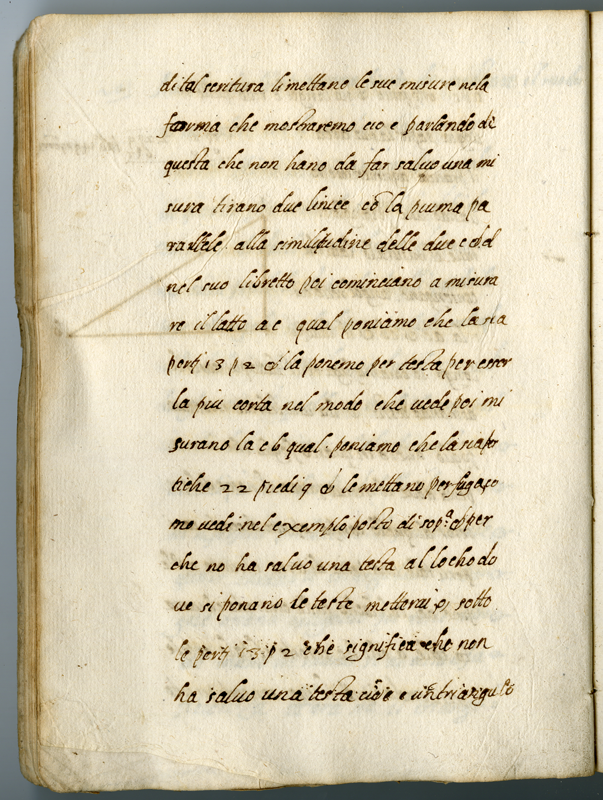 di tal scritura li mettano le sue misure nela
forma che mostraremo cio e parlando de
questa che non hano da far salvo una mi
sura tirano due liniee cõ la piuma pa
rallele alla similitudine delle due c &
nel suo libretto poi cominciano a misura
re il latto a c qual poniamo che la sia
pertj 13 p 2 & la ponemo per testa per esser
la piu corta nel modo che vede poi mi
surano la c b qual poniamo che la sia per
tiche 22 piedi 9 & le mettano per fuga co
mo vedi nel exemplo posto di sop.ª & per
che no ha salvo una testa al locho do
ve si ponano le teste metterai sotto
le pertj 13 p 2 che significa che non
ha salvo una testa cioè e un triangulo